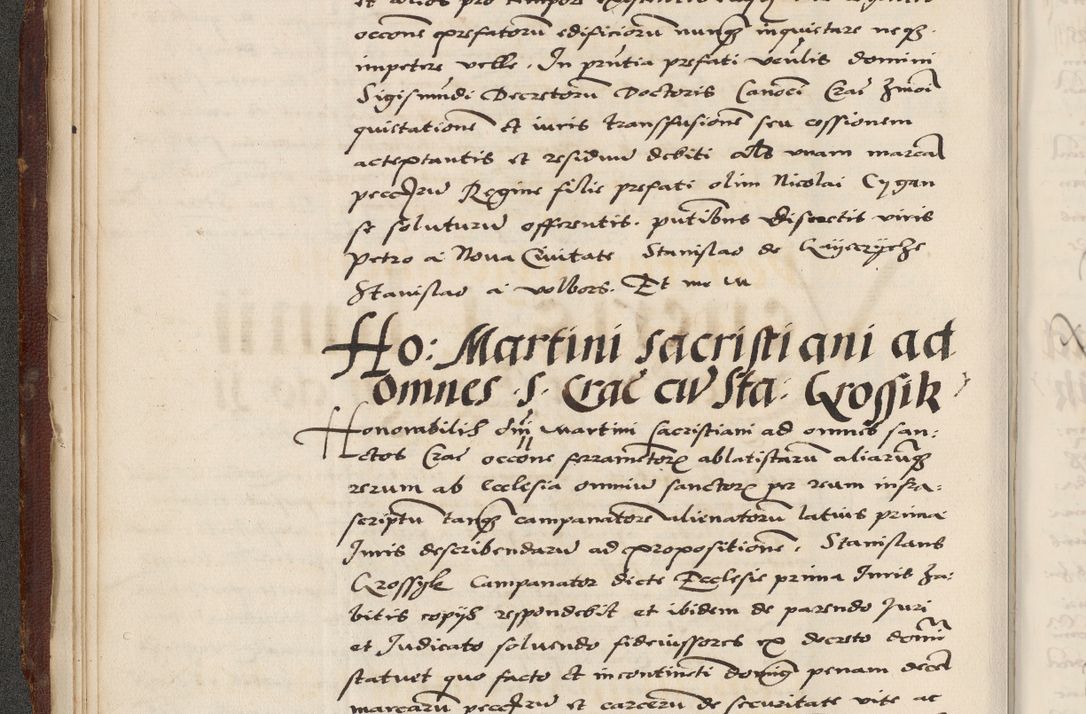 occone prefatorum edificiorum nunquam inquietare neque
impetere velle. In prntia prefati venlis domini
Sigismundi Decretorum Doctoris Canoci Crac
quietatione et iuris transfusione seu cessionem
acceptantis et residuum debiti als unam marcam
peccunie Regine filie prefati olim Nicolai Cygan
se soluturum offerentis. putibus discretis viris
Petro a Nova Civitate Stanislao de
Stanislao a volbors. Et me
Ho: Martini sacristiani ad
omnes .S. Crac cum Sta: Grossik
Honorabilis dni Martini sacristiani ad omnes san:
ctos Crac occone ferrametorum ablatistarum aliarumque
rerum ab Ecclesia omnium sanctorum per reum infra:
scriptum tanquam campanatorem alienatorum latius prima
Juris describendarum ad propositione. Stanislaus
Grossyk Campanator dicte Ecclesie prima Juris Ha:
bitis copijs respondebit et ibidem de parendo Juri
et Judicato solvendo fideiussores ex decreto domini
statuet quo facto et incontineti penam decem
marcarum peccunie et carcerum de securitate vite ac